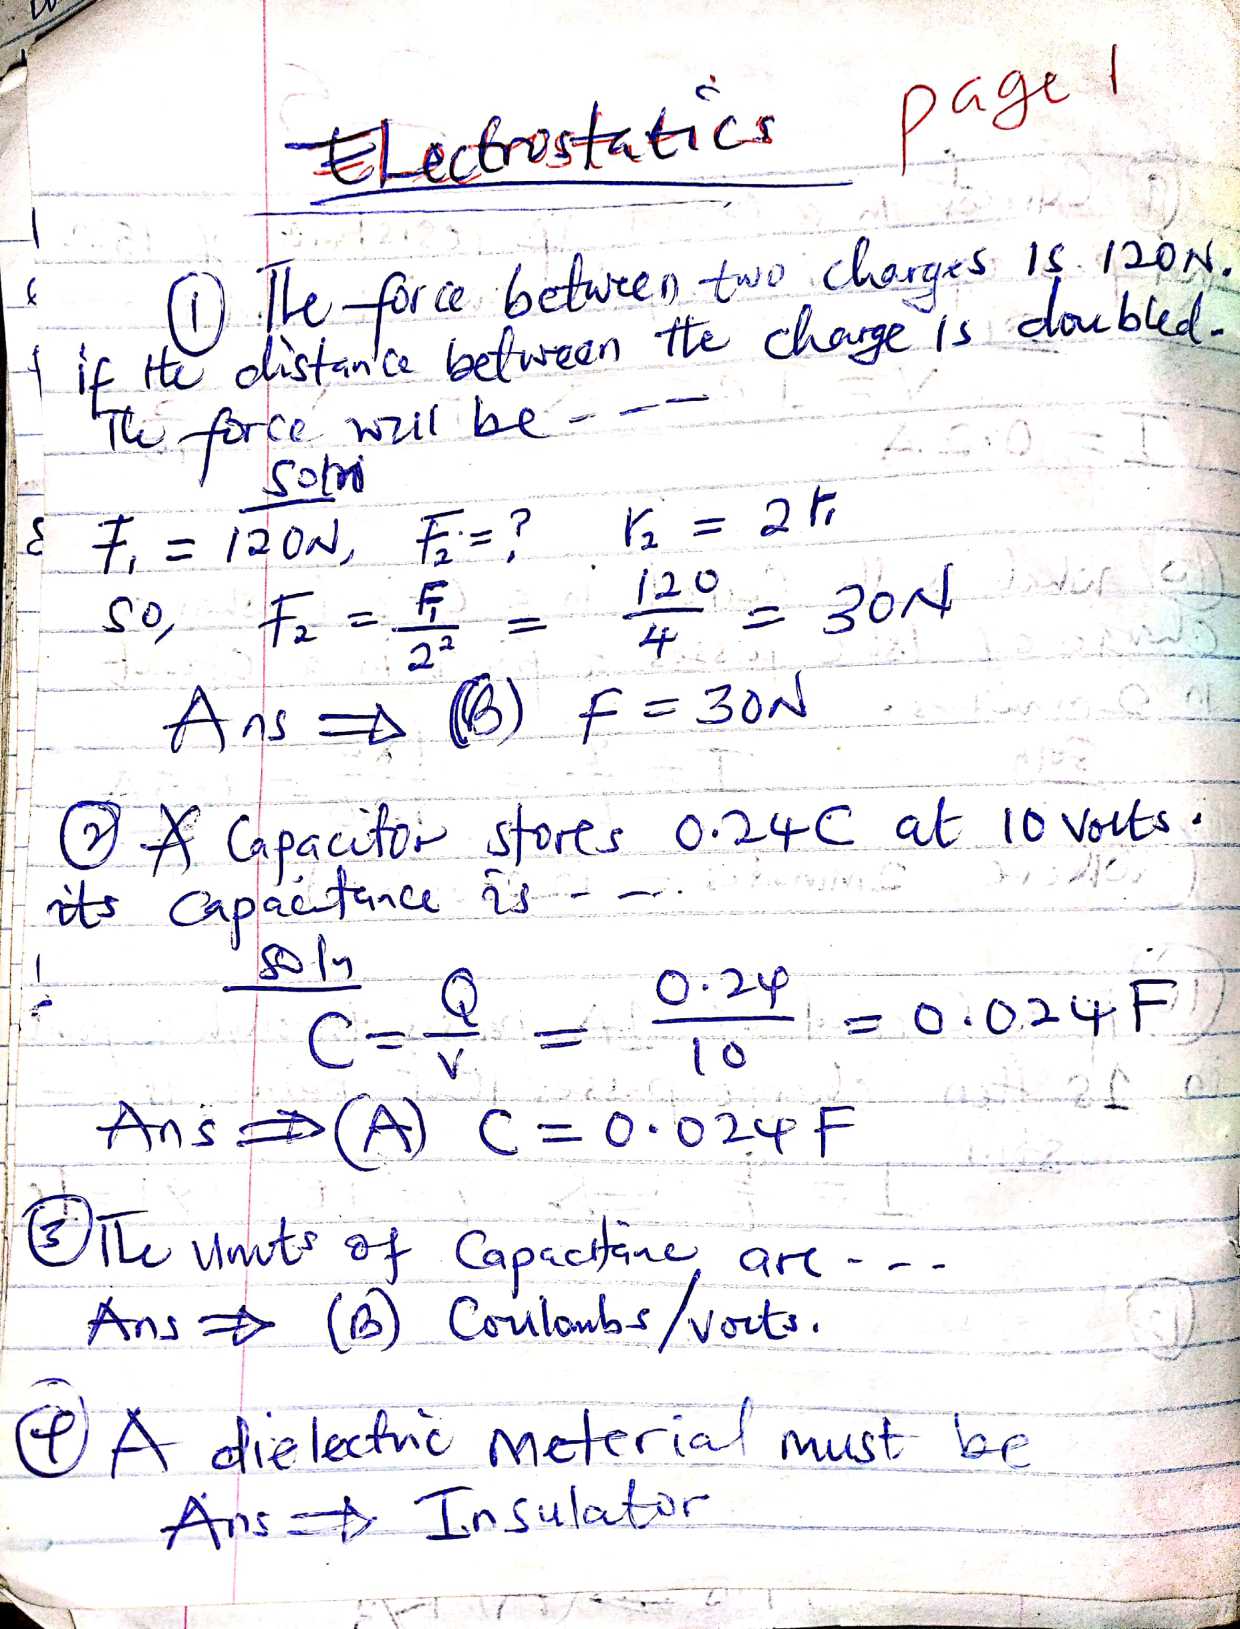 page 1
Electrostatics
① The force between two charges is 120N.
if the distance between the charge is doubled-
The force will be - - -
Soln
F₁ = 120N, F₂ = ? r₂ = 2r₁
so, F₂ = F₁/2² = 120/4 = 30N
Ans ⇒ (B) F = 30N
② A Capacitor stores 0.24C at 10 volts.
its capacitance is - - -
soln
C = Q/V = 0.24/10 = 0.024F
Ans ⇒ (A) C = 0.024F
③ The Units of Capacitane are - - -
Ans ⇒ (B) Coulombs/volts.
④ A dielectric meterial must be
Ans ⇒ Insulator